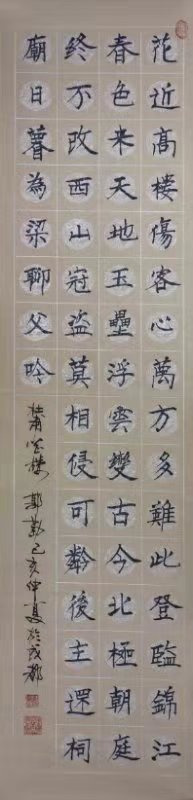 花近高樓傷客心萬方多難此登臨錦江
春色来天地玉壘浮雲變古今北極朝庭
終不改西山寇盜莫相侵可齡後主還祠
廟日暮為梁聊父吟
杜甫登樓 己亥仲夏於成都